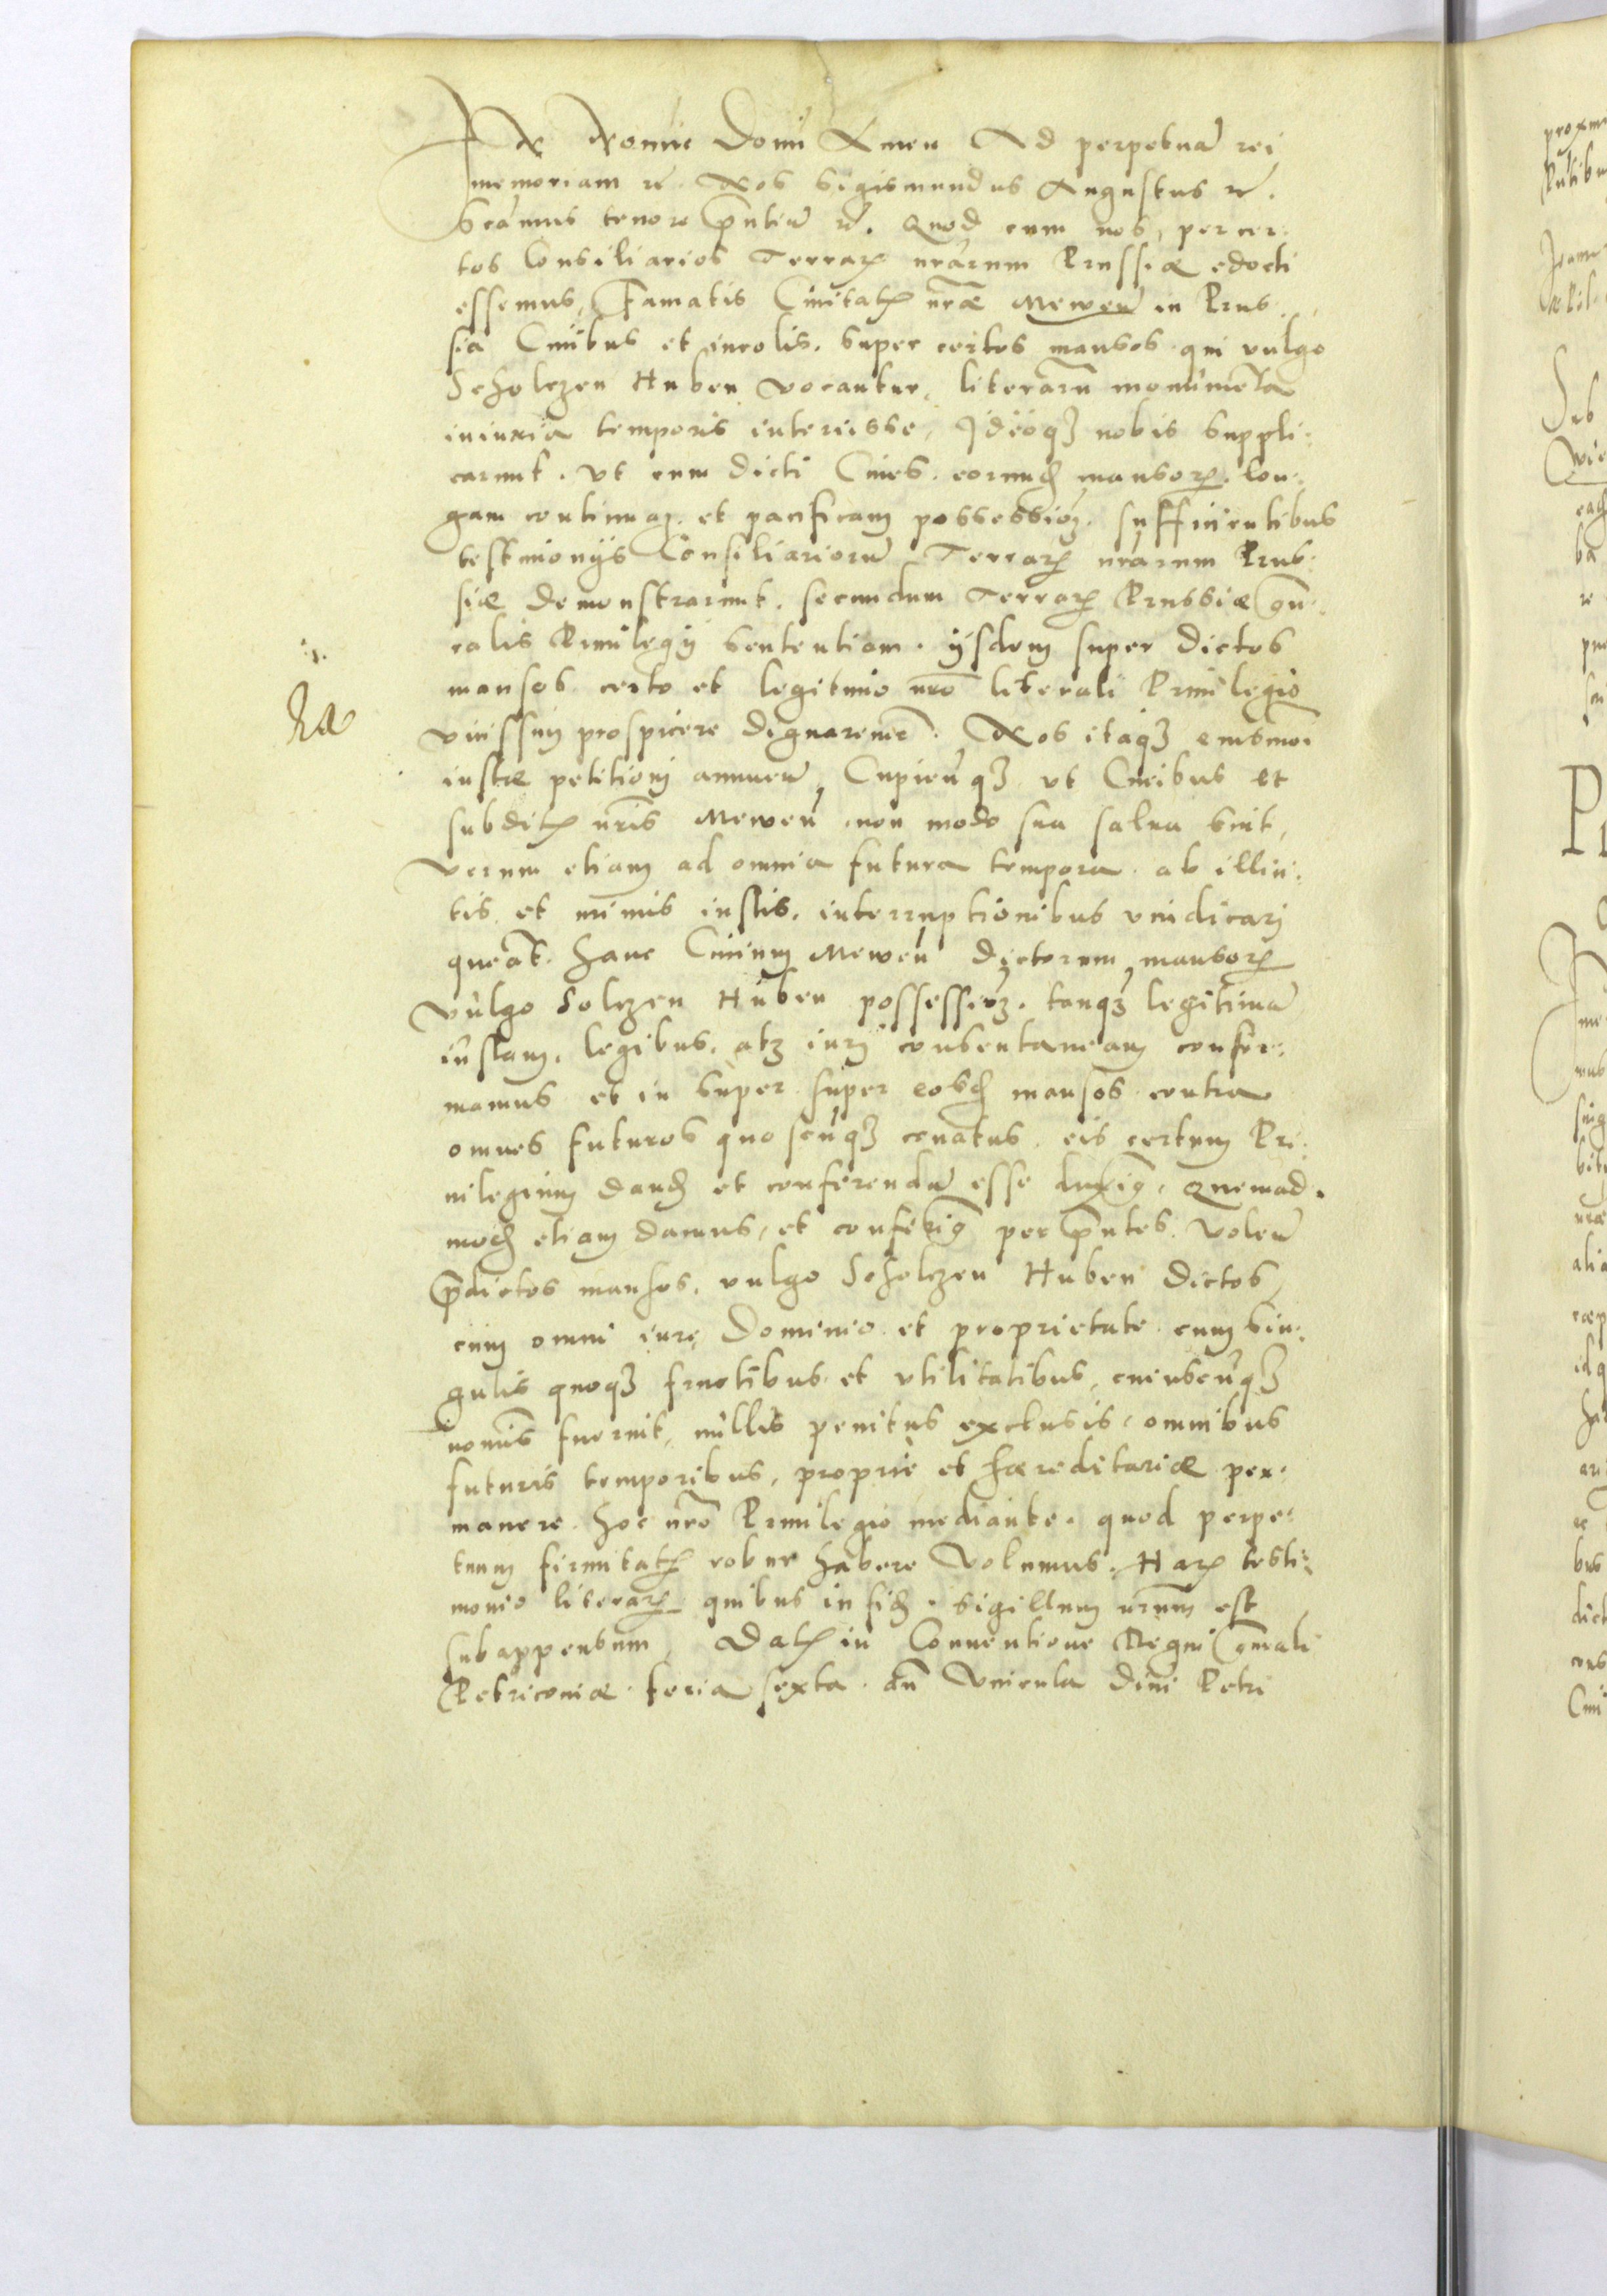 In Nomine Domi Amen Ad perpetuam rei
memoriam etc. Nos Sigismundus Augustus etc.
Significamus tenore pntium etc. Quod cum nos, per cer-
tos Consiliarios Terrarum nrarum Prussiæ edocti
essemus, Famatis Civitatis nræ Mewen in Prus-
sia Civibus et incolis, super certos mansos qui vulgo
Scholczen Huben vocantur, literarum monumenta
iniuria temporis interiisse, Ideoq3 nobis suppli-
carunt. Vt cum dicti Cives eorund mansorum lon-
gam continuam et pacificam possessionem sufficientibus
testimonijs Consiliariorum Terrarum nrarum Prus-
siæ demonstrarunt, secundum Terrarum Prussiæ gene-
ralis Priuilegij sententiam, ijsdem super dictos
mansos certo et legitimo nro literali Priuilegio
prospicere dignaremur. Nos itaq3 eiusmoi
iustæ petitioni annuen, Cupienq3 vt Ciuibus et
subditis nris Mewen non modo sua salua sint,
verum etiam ad omnia futura tempora ab illici-
tis et minus iustis interruptionibus vindicari
queant. Hanc Ciuium Mewen dictorum mansorum
vulgo Solczen Huben possessionem tanq3 legitimam
iustam, legibus, atq3 iuri consentaneam confir-
mamus et in super super eosd mansos contra
omnes futuros quoscunq3 conatus eis certum Pri-
uilegium dand et conferendum esse duximus, Quemad-
mod etiam damus, et conferimus per pntes. Volen
prædictos mansos, vulgo Scholczen Huben dictos,
cum omni iure, Dominio et proprietate cum sin-
gulis quoq3 fructibus et vtilitatibus, cuiuscunq3
nominis fuerint, nullis penitus exclusis, omnibus
futuris temporibus, proprie et hæreditarie per-
manere, hoc nro Priuilegio mediante, quod perpe-
tuum firmitatis robur habere volumus. Harum testi-
monio literarum quibus in fid sigillum nrum est
subappensum. Datum in Conuentione Regni gnrali
Petricouiæ feria sexta an Vincula Diui Petri